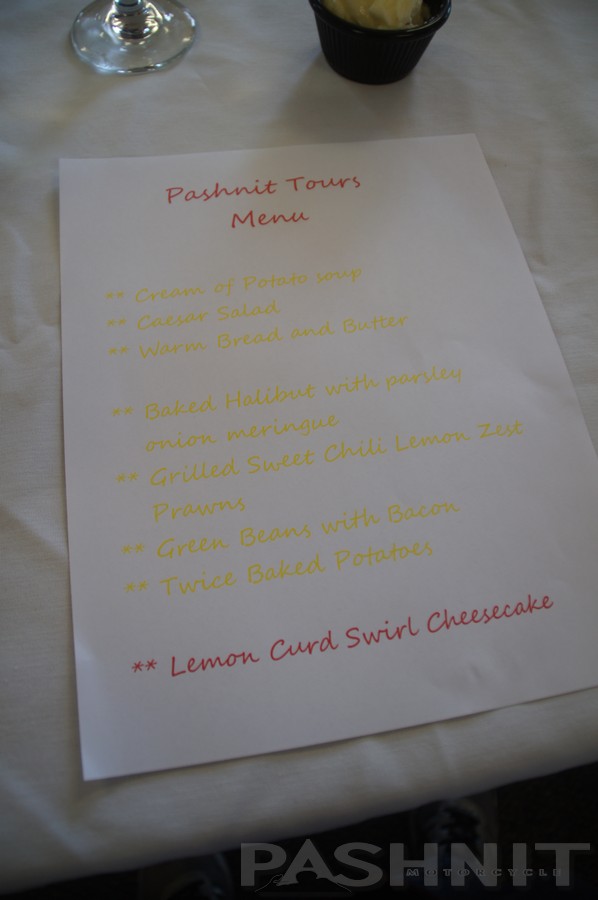 Pashnit Tours
Menu
** Cream of Potato soup
** Caesar Salad
** Warm Bread and Butter
** Baked Halibut with parsley
onion meringue
** Grilled Sweet Chili Lemon Zest
Prawns
** Green Beans with Bacon
** Twice Baked Potatoes
** Lemon Curd Swirl Cheesecake
PASHNIT
MOTORCYCLE